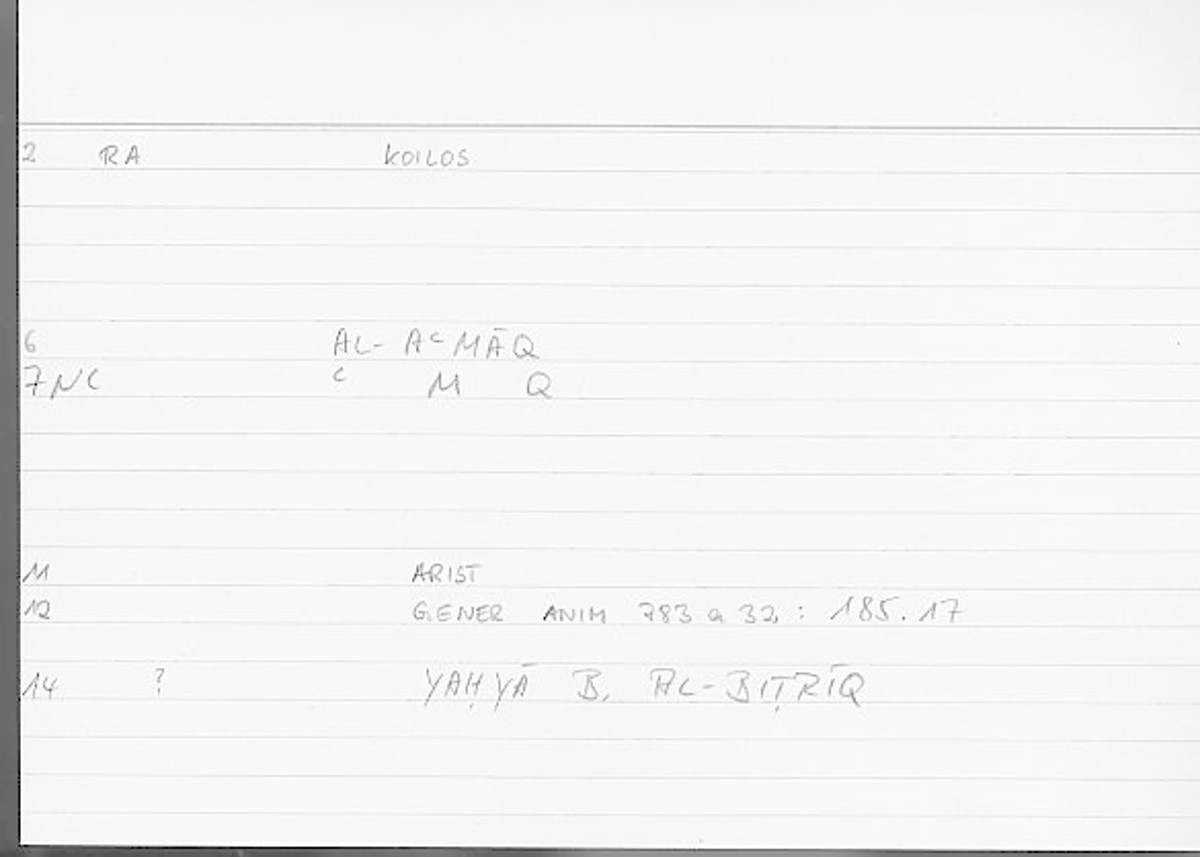 2 RA KOILOS
6 AL- AᶜMĀQ
7NC ᶜ M Q
11 ARIST
12 GENER ANIM 783 a 32 : 185.17
14 ? YAḤYĀ B. AL-BIṬRĪQ